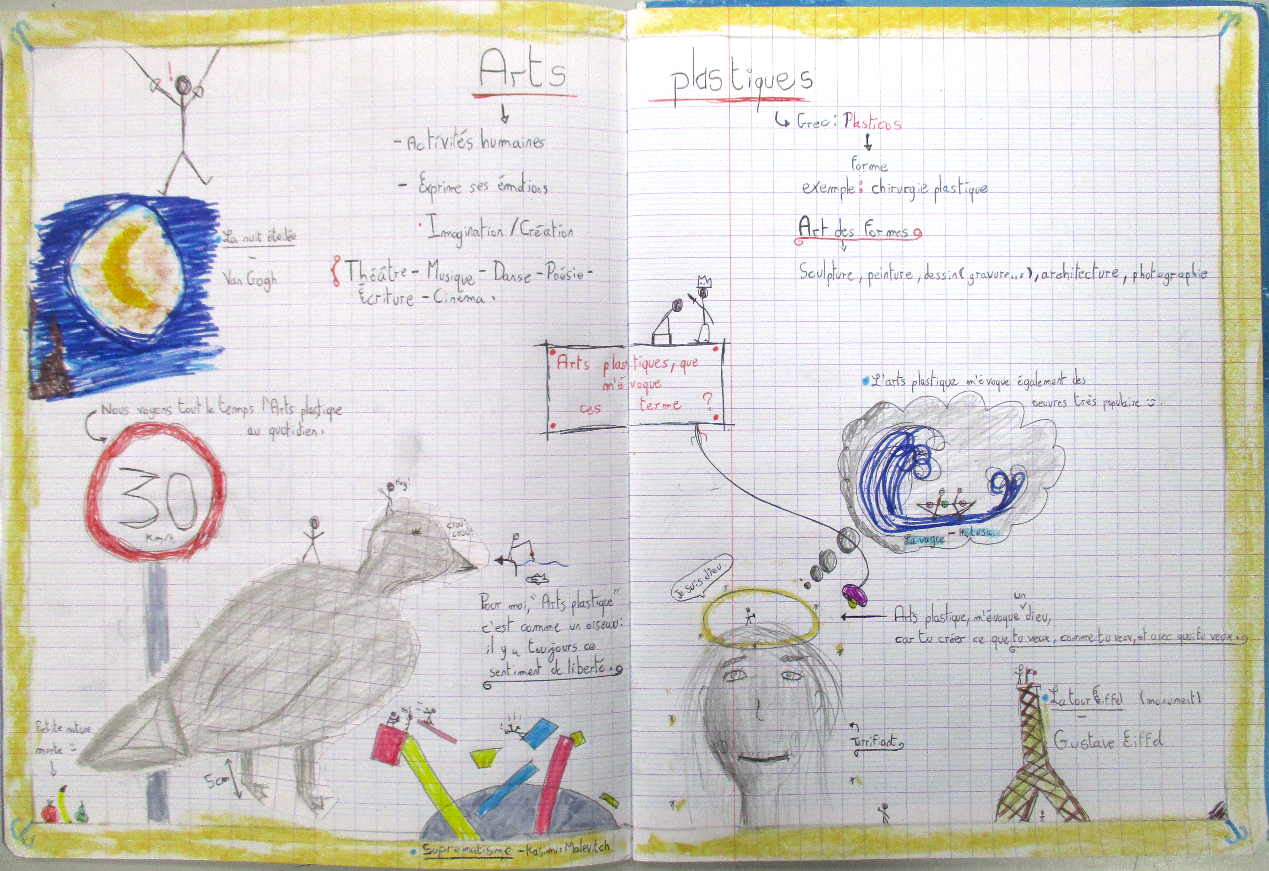 Arts plastiques
- Activités humaines
- Exprime ses émotions
· Imagination / Création
{ Théâtre - Musique - Danse - Poésie -
Écriture - Cinéma.
↳ Grec : Plasticos
forme
exemple : chirurgie plastique
Art des formes
Sculpture, peinture, dessin (gravure...), architecture, photographie
!
La nuit étoilée
-
Van Gogh
Arts plastiques, que
m'évoque
ces terme ?
Nous voyons tout le temps l'Arts plastique
au quotidien.
30
Km/h
Hey!
CROU
CROUU
Pour moi, "Arts plastique"
c'est comme un oiseau :
il y a toujours ce
sentiment de liberté.
Petite nature
morte
5cm
Suprématisme - Kasimir Malevitch
• L'arts plastique m'évoque également des
oeuvres très populaire :).
La vague - Hokusai
Je suis dieu
Arts plastique, m'évoque un dieu,
car tu créer ce que tu veux, comme tu veux, et avec quoi tu veux.
Terrifiant
• La tour Eiffel (monument)
-
Gustave Eiffel